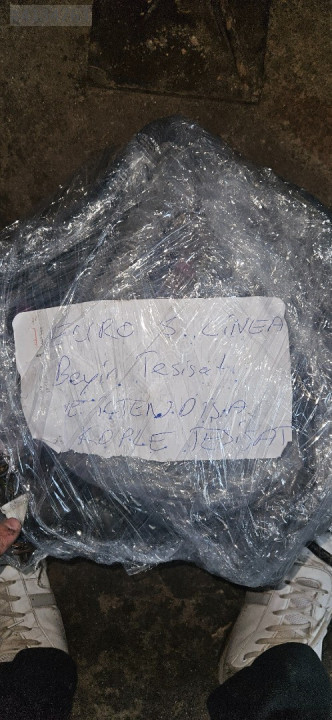 EURO 5. LİNEA
Beyin Tesisatı
EKTEN.DİNA
KOPLE TESİSAT